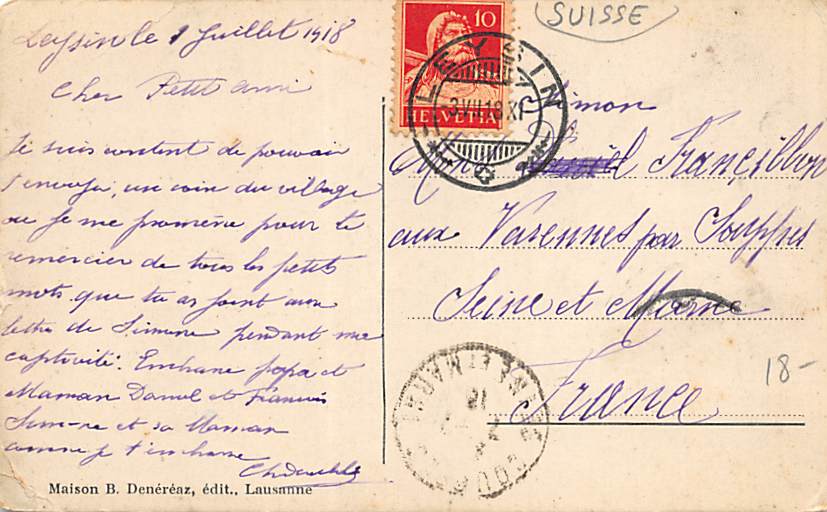 Leysin le 1 Juillet 1918
Cher Petit ami
Je suis content de pouvoir
t'envoyé, un coin du village
ou je me promène pour te
remercier de tous les petits
mots que tu as joint aux
lettre de Simone pendant ma
captivité. Embrasse papa et
Maman Daniel et Francis
Simone et sa Maman
comme je t'embrasse
Maison B. Denéréaz, édit., Lausanne
SUISSE
10
HELVETIA
LEYSIN
3 VII 18 XI
Simon
Françillon
aux Varennes par Souppes
Seine et Marne
France
SOUPPES
SEINE ET MARNE
18
18-